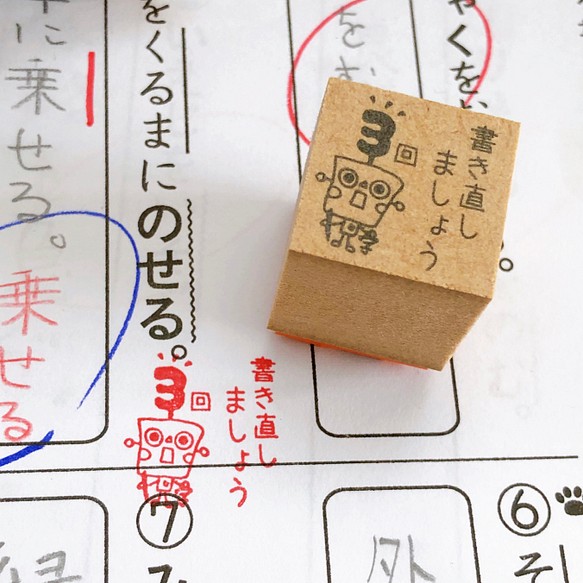 3回
書き直し
ましょう
くを
を
をくるまにのせる。
に乗せる。
乗せる
3回
書き直し
ましょう
⑥
そ
外
⑦